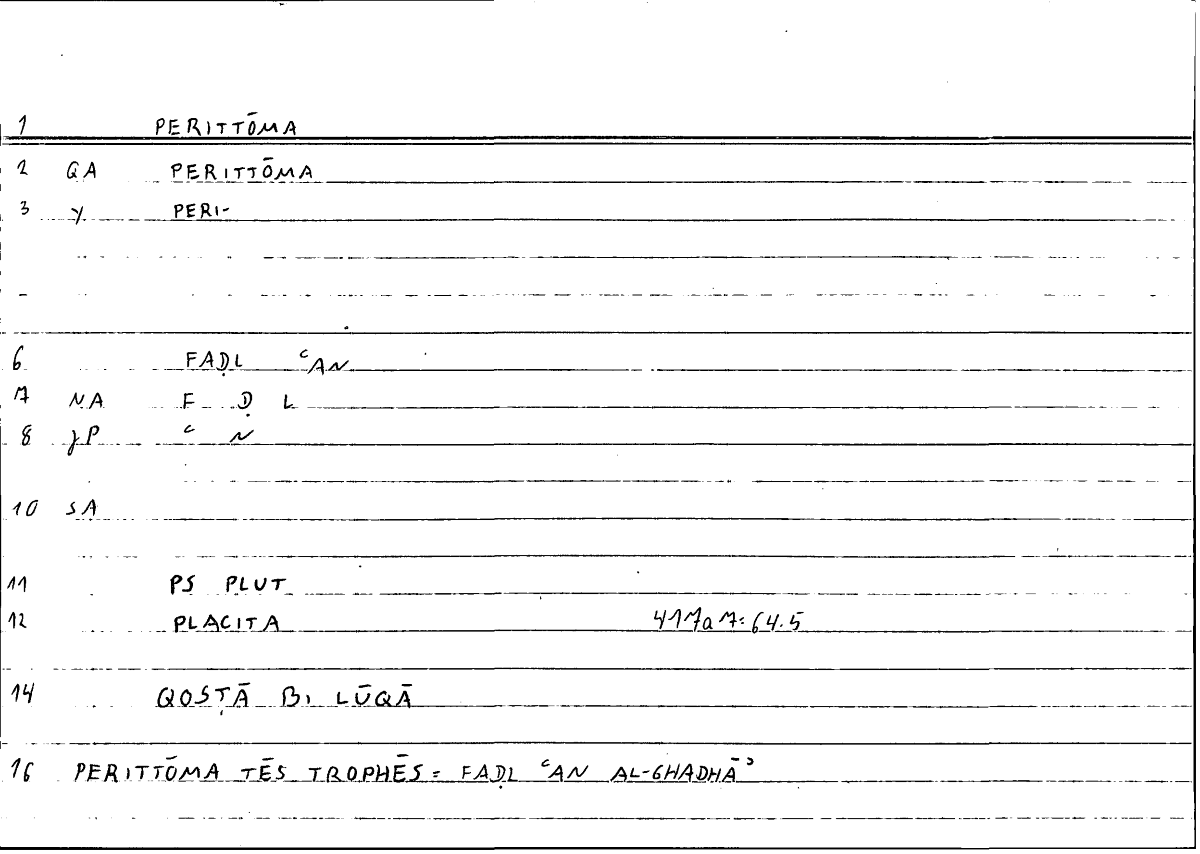 1 PERITTŌMA
2 QA PERITTŌMA
3 Y PERI-
6 FAḌL ʿAN
7 NA F Ḍ L
8 JP ʿ N
10 SA
11 PS PLUT
12 PLACITA 417a7=64.5
14 QOSṬĀ B. LŪQĀ
16 PERITTŌMA TĒS TROPHĒS = FAḌL ʿAN AL-GHADHĀʾ